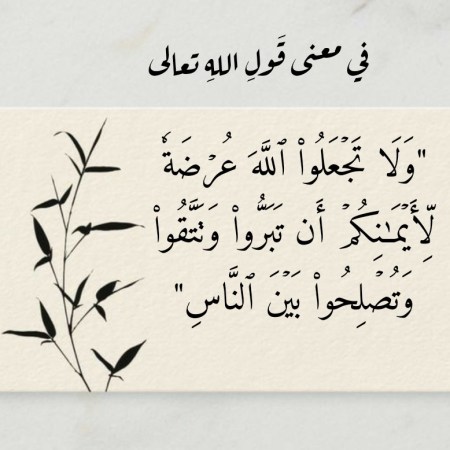 في معنى قَولِ اللهِ تعالى
"وَلَا تَجْعَلُوا۟ ٱللَّهَ عُرْضَةًۭ
لِّأَيْمَـٰنِكُمْ أَن تَبَرُّوا۟ وَتَتَّقُوا۟
وَتُصْلِحُوا۟ بَيْنَ ٱلنَّاسِ"